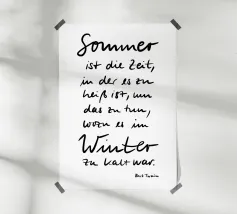 Sommer
ist die Zeit,
in der es zu
heiß ist, um
das zu tun,
wozu es im
Winter
zu kalt war.
Mark Twain